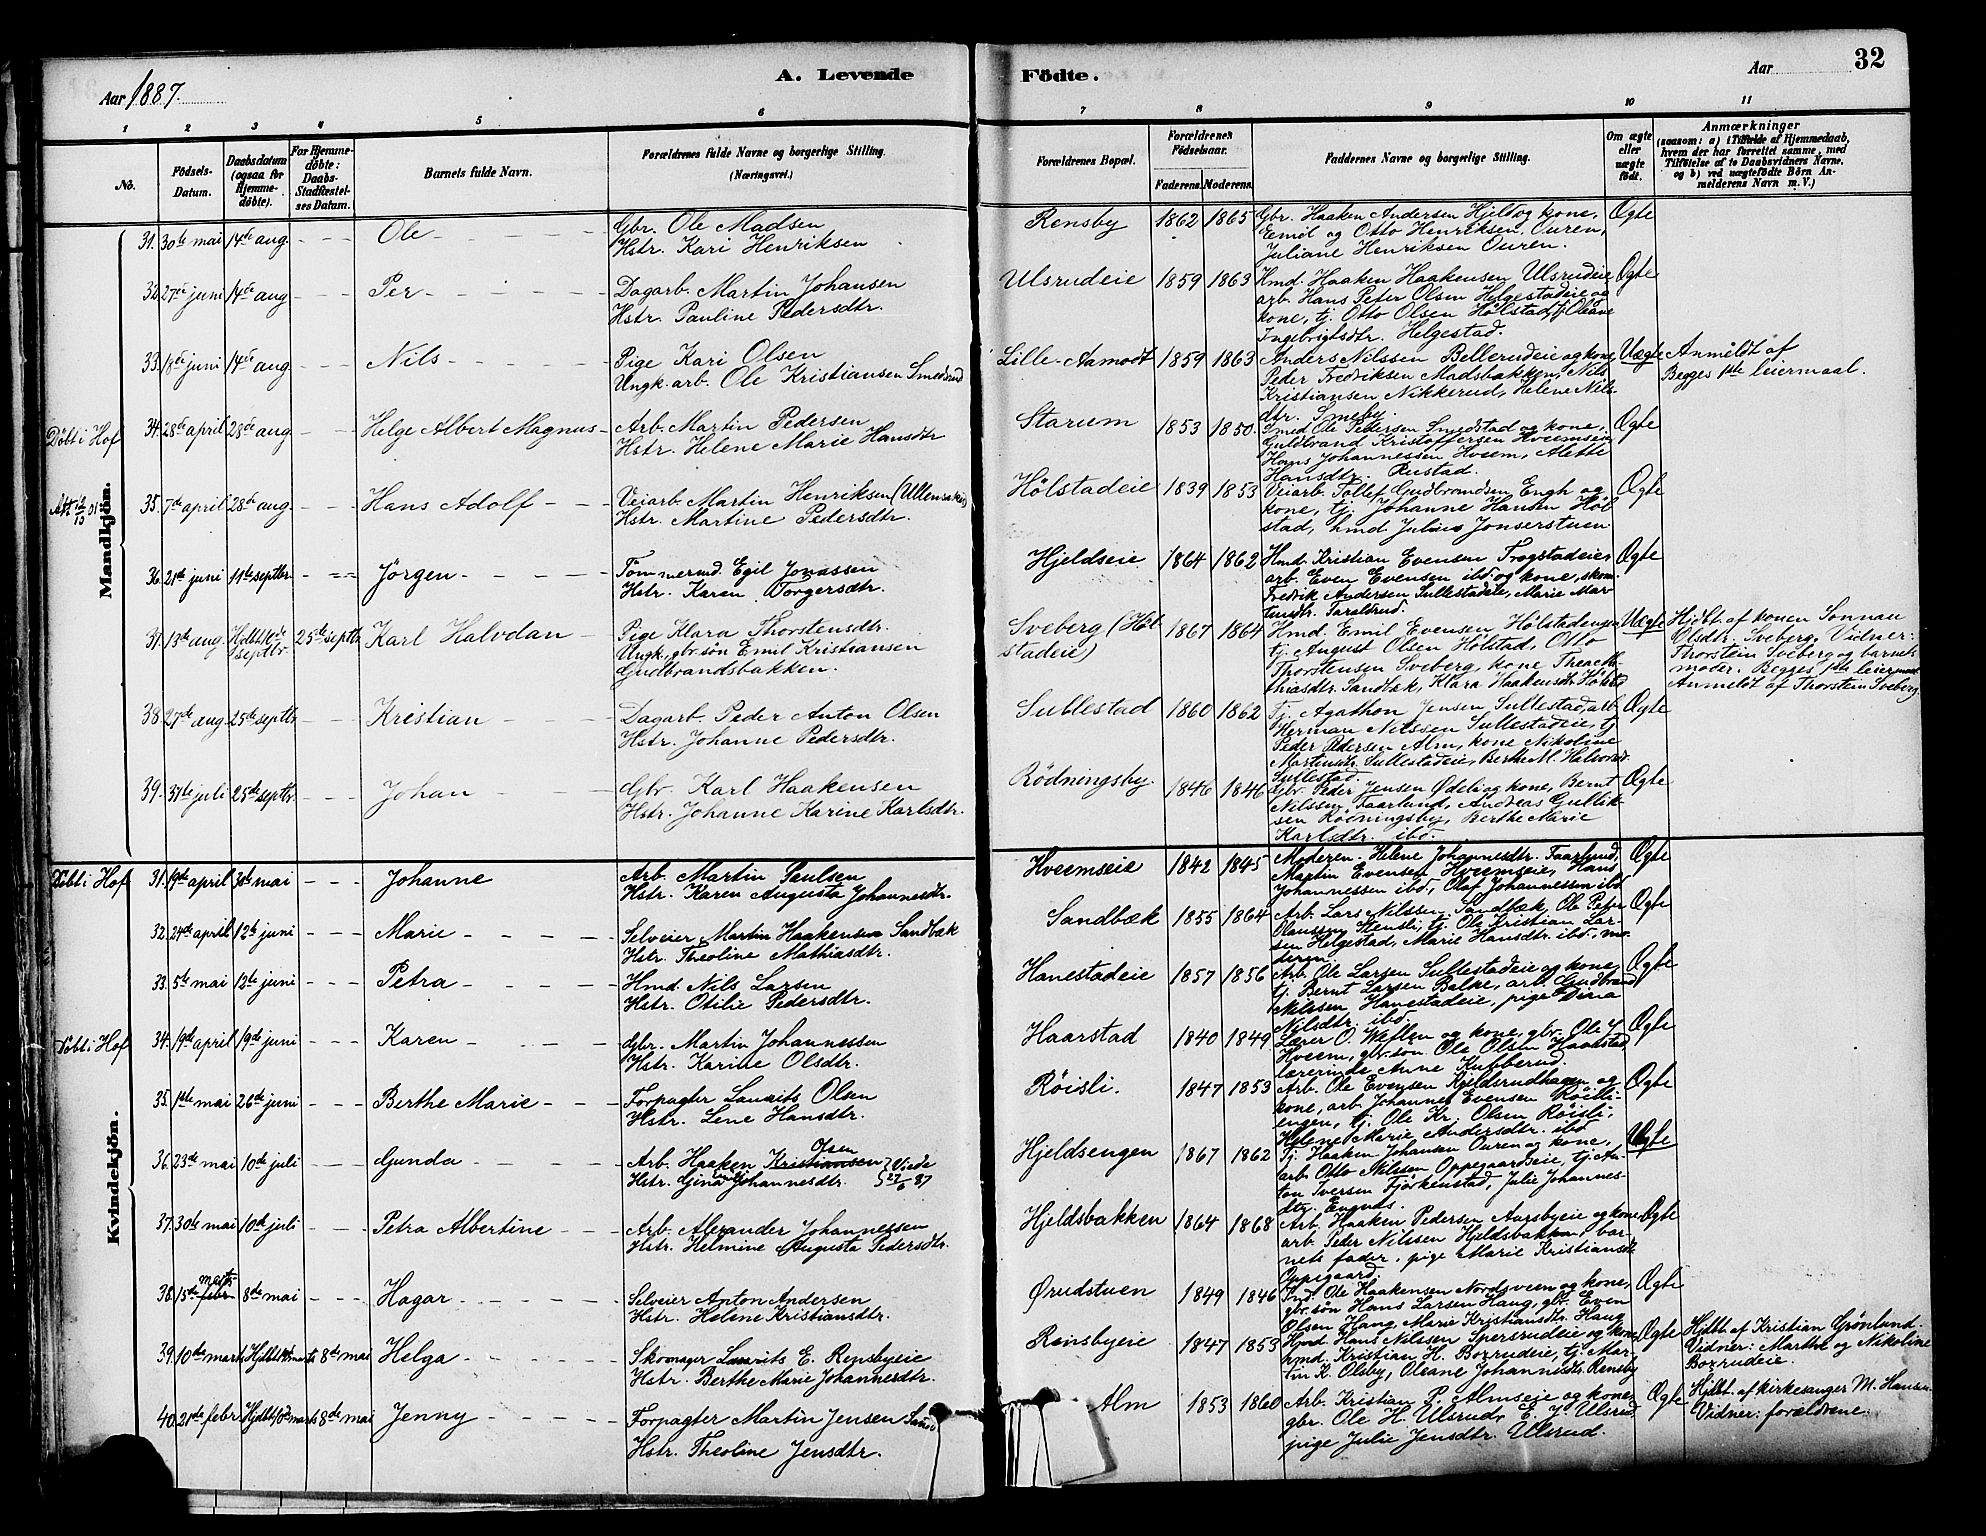 A. Levende Födte.
Aar 1887.
Aar 32
1 2 3 4 5 6 7 8 9 10 11
No.
Födsels-Datum.
Daabsdatum (ogsaa for Hjemme-döbte).
For Hjemme-döbte: Daabs-Stadfæstel-ses Datum.
Barnets fulde Navn.
Forældrenes fulde Navne og borgerlige Stilling.
(Næringsvei.)
Forældrenes Bopæl.
Forældrenes Födselsaar.
Faderens. Moderens.
Faddernes Navne og borgerlige Stilling.
Om ægte eller uægte födt.
Anmærkninger
(saasom: a) i Tilfælde af Hjemmedaab,
hvem der har forrettet samme, med
Tilföielse af to Daabsvidners Navne,
og b) ved uægtefödte Börn An-
melderens Navn m. V.)
Mandkjön.
31. 30te mai 14de aug. Ole Gbr. Ole Madsen
Hstr. Kari Henriksen
Rensby 1862 1865 Gbr. Haaken Andersen Hjeld og kone,
Emil og Otto Henriksen Ouren,
Juliane Henriksen Ouren.
Ægte
32. 27de juni 14de aug Per Dagarb. Martin Johansen
Hstr. Pauline Pedersdtr.
Ulsrudeie 1859 1863 Hmd. Haaken Haakensen Ulsrudeie
arb. Hans Peter Olsen Helgestadeie og
kone, tj. Otto Olsen Hölstad, tj. Oleane
Ingebrigtsdtr. Helgestad.
Ægte
33. 18de juni 14de aug Nils Pige Kari Olsen
Ungk. arb. Ole Kristiansen Smedsrud
Lille-Aamodt 1859 1863 Anders Nilssen Bellerudeie og kone,
Peder Fredriksen Madsbakken, Nils
Kristiansen Nikkerud, Helene Nils-
dtr. Smeby.
Uægte Anmeldt af
Begges 1ste leiermaal.
Döbt i Hof 34. 28de april 28de aug Helge Albert Magnus Arb. Martin Pedersen
Hstr. Helene Marie Hansdtr
Starum 1853 1850 Smed Ole Pedersen Smedstad og kone,
Guldbrand Kristoffersen Hveemseie,
Hans Johannessen Hveem, Alette
Hansdtr. Rustad.
Ægte
35. 7de april 28de aug Hans Adolf Veiarb. Martin Henriksen (Ullensaker)
Hstr. Martine Pedersdtr.
Hölstadeie 1839 1853 Veiarb. Tollef Gudbrandsen Engh og
kone, tj. Johanne Hansen Höl
stad, hmd. Julius Jonserstuen
Ægte
36. 21de juni 11te septbr Jörgen Tömmermd. Egil Jonassen
Hstr. Karen Torgersdtr.
Hjeldseie 1864 1862 Hmd. Kristian Evensen Trogstadeie,
arb. Even Evensen ibd. og kone, skom.
Fredrik Andersen Sullestadeie, Marie Mar-
tinsdtr. Taralsrud.
Ægte
37. 13de aug. Hjdbt. 10de septbr. 25de septbr Karl Halvdan Pige Klara Thorstensdtr.
Ungk. gbr. sön Emil Kristiansen
Gudbrandsbakken.
Sveberg (Höl
stadeie) 1867 1864 Hmd. Emil Evensen Hölstadengen
tj. August Olsen Hölstad, Otto
Thorstensen Sveberg, kone Thea Ma-
thiasdtr. Sandbæk, Klara Haakensdtr. Hölstad
Uægte Hjdbt. af konen Sonnau
Olsdtr. Sveberg. Vidner:
Thorstein Sveberg og barnets
moder. Begges 1ste leiermaal
Anmeldt af Thorstein Sveberg.
38. 27de aug 25de septbr Kristian Dagarb. Peder Anton Olsen
Hstr. Johanne Pedersdtr.
Sullestad 1860 1862 Tj. Agathon Jensen Sullestad, arb.
Herman Nilssen Sullestadeie, tj.
Peder Pedersen Alm, kone Nikoline
Martinsdtr. Sullestadeie, Berthe M. Halvorsd.
Sullestad.
Ægte
39. 31te juli 25de septbr Johan Gbr. Karl Haakensen
Hstr. Johanne Karine Karlsdtr.
Rödningsby 1846 1846 Gbr. Peder Jensen Ödeli og kone, Bernt
Nilssen Faarlund, Andreas Gullik-
sen Rödningsby, Berthe Marie
Karlsdtr. ibd.
Ægte
Kvindekjön.
Döbt i Hof 31. 19de april 30te mai Johanne Arb. Martin Paulsen
Hstr. Karen Augusta Johannesdtr.
Hveemseie 1842 1845 Moderen. Helene Johannesdtr. Faarlund,
Martin Evensen Hveemseie, Hans
Johannessen ibd, Olaf Johannessen ibd
Ægte
32. 24de april 12te juni Marie Selveier Martin Haakensen Sandbæk
Hstr. Theoline Mathiasdtr.
Sandbæk 1855 1864 Arb. Lars Nilssen Sandbæk, Ole Peter
Olaussen Stensli, tj. Ole Kristian Lar-
sen Helgestad, Marie Hansdtr. ibd., mo-
deren.
Ægte
33. 5te mai 12te juni Petra Hmd. Nils Larsen
Hstr. Otilie Pedersdtr.
Hanestadeie 1857 1856 Arb. Ole Larsen Sullestadeie og kone,
tj. Bernt Larsen Balke, arb. Gudbrand
Nilssen Hanestadeie, pige Dina
Nilsdtr. ibd.
Ægte
Döbt i Hof 34. 19de april 19de juni Karen Gbr. Martin Johannessen
Hstr. Karine Olsdtr.
Haarstad 1840 1849 Lærer O. Weflen og kone, gbr. Ole J.
Hveem, gbr. sön Ole Olsen Haarstad
lærerinde Anne Kufberud.
Ægte
35. 1ste mai 26de juni Berthe Marie Forpagter Laurits Olsen
Hstr. Lene Hansdtr.
Röisli. 1847 1853 Arb. Ole Evensen Kjeldsrudhagen og
kone, arb. Johannes Evensen Röisli-
engen, tj. Ole Kr. Olsen Röisli,
Helene Marie Andersdtr. ibd
Ægte
36. 23de mai 10de juli Gunda Arb. Haaken Kristiansen Olsen } Viede
Hstr. Gina Johannesdtr. 27/6 87
Hjeldsengen 1867 1862 Tj. Haaken Johansen Ouren og kone,
arb. Otto Nilssen Oppegaardseie, tj. An-
ton Iversen Fjörkenstad, Julie Johannes-
dtr. Engnes.
Uægte
37. 30te mai 10de juli Petra Albertine Arb. Alexander Johannessen
Hstr. Helmine Augusta Pedersdtr.
Hjeldsbakken 1864 1868 Arb. Haaken Pedersen Aarsbyeie og kone,
arb. Peder Nilssen Hjeldsbakken, bar-
nets fader, pige Marie Kristiansdtr.
Oppegaard.
Ægte
38. 15de febr marts 8de mai Hagar Selveier Anton Andersen
Hstr. Helene Kristiansdtr.
Ørudstuen 1849 1846 Ind. Ole Haakensen Nordsveen og kone,
gbr. sön Hans Larsen Haug, gbr. Even
Olsen Haug, Marie Kristiansdtr. Haug
Ægte
39. 10de marts Hjdbt. marts 8de mai Helga Skomager Laurits E. Rensbyeie
Hstr. Berthe Marie Johannesdtr.
Rensbyeie 1847 1853 Hmd. Hans Nilssen Spersrudeie og kone
hmd. Kristian H. Bozrudeie, tj. Mar-
tin K. Olsby, Oleane Johannesdtr. Rensby
Ægte Hjdbt. af Kristian Grönland.
Vidner: Marthe og Nikoline
Bozrudeie.
40. 21de febr. Hjdbt. 10de marts 8de mai Jenny Forpagter Martin Jensen
Hstr. Theoline Jensdtr.
Alm 1853 1860 Arb. Kristian P. Almseie og kone,
gbr. Ole H. Ulsrud, E. J. Ulsrud,
pige Julie Jensdtr. Ulsrud.
Ægte Hjdbt. af kirkesanger M. Hansen.
Vidner: forældrene.